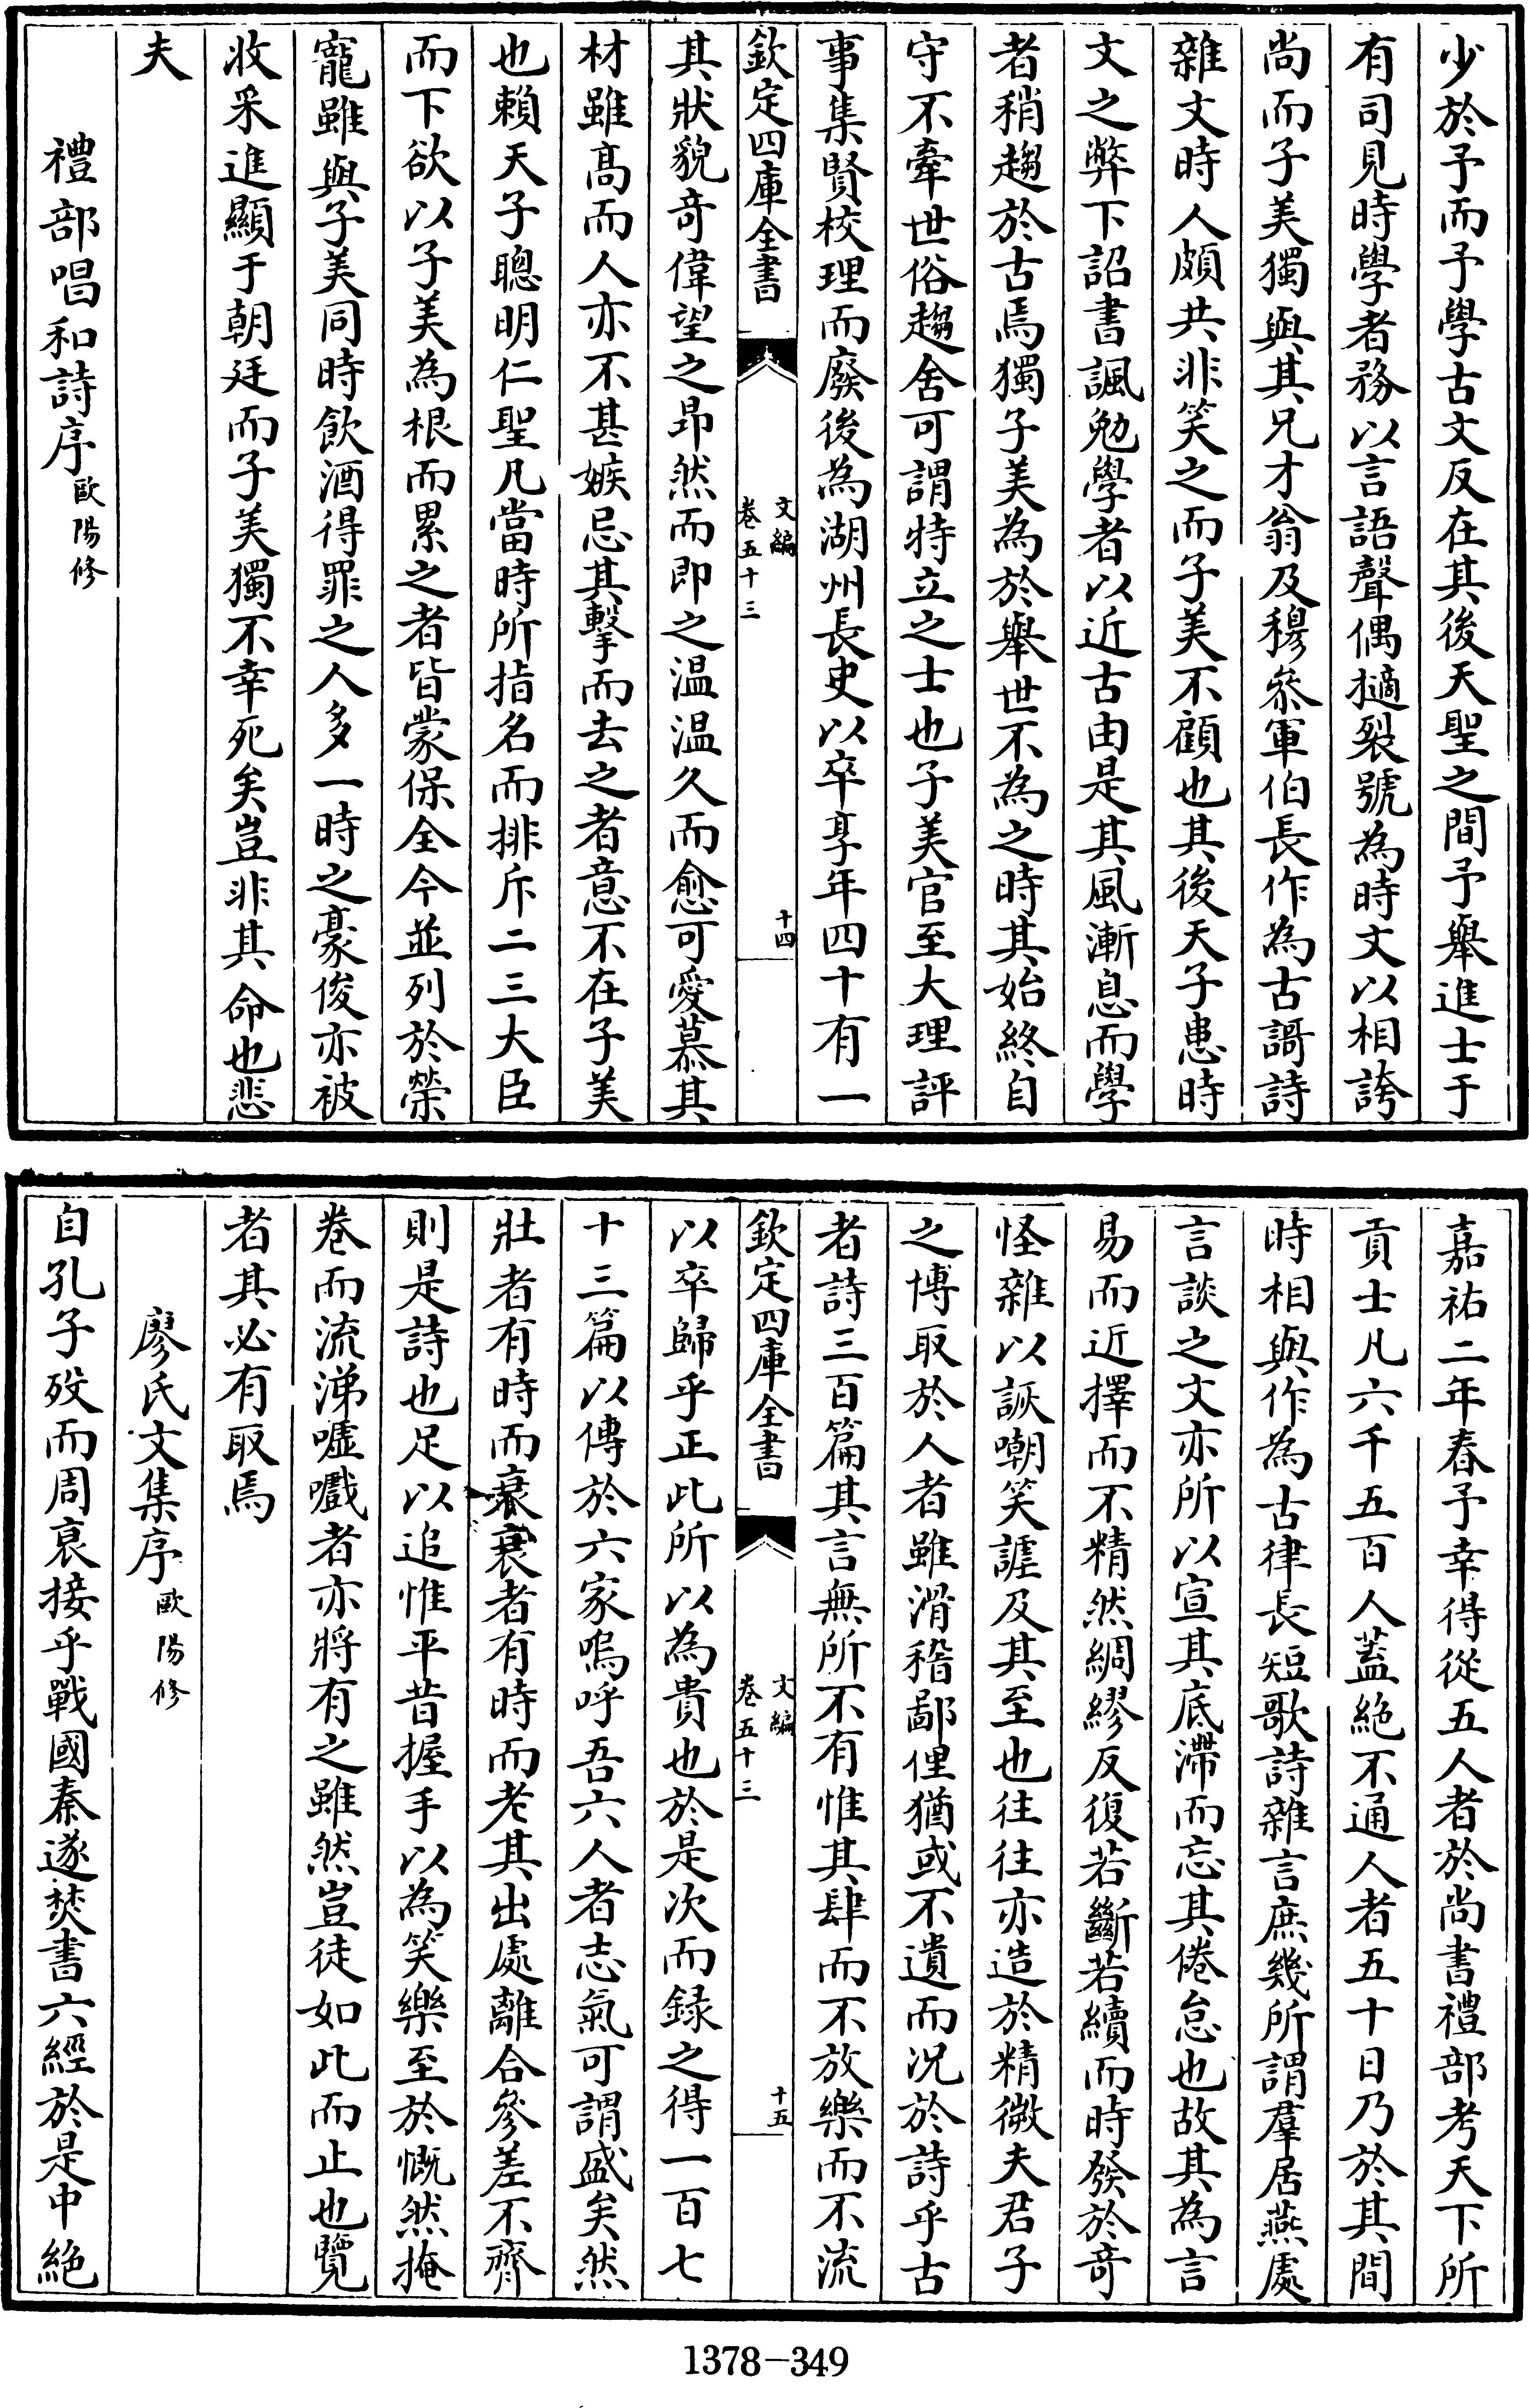 少於予而予學古文反在其後天聖之間予舉進士于
有司見時學者務以言語聲偶擿裂號為時文以相誇
尚而子美獨與其兄才翁及穆叅軍伯長作為古謌詩
雜文時人頗共非笑之而子美不顧也其後天子患時
文之弊下詔書諷勉學者以近古由是其風漸息而學
者稍趨於古焉獨子美為於舉世不為之時其始終自
守不牽世俗趨舍可謂特立之士也子美官至大理評
事集賢校理而廢後為湖州長史以卒享年四十有一
欽定四庫全書
文編
卷五十三
十四
其狀貌竒偉望之昻然而即之温温久而愈可愛慕其
材雖髙而人亦不甚嫉忌其擊而去之者意不在子美
也賴天子聰明仁聖凡當時所指名而排斥二三大臣
而下欲以子美為根而累之者皆蒙保全今並列於榮
寵雖與子美同時飲酒得罪之人多一時之豪俊亦被
收采進顯于朝廷而子美獨不幸死矣豈非其命也悲
夫
禮部唱和詩序歐陽修
嘉祐二年春予幸得從五人者於尚書禮部考天下所
貢士凡六千五百人蓋絶不通人者五十日乃於其間
時相與作為古律長短歌詩雜言庶幾所謂羣居燕處
言談之文亦所以宣其底滯而忘其倦怠也故其為言
易而近擇而不精然綢繆反復若斷若續而時發於竒
怪雜以詼嘲笑謔及其至也往往亦造於精微夫君子
之博取於人者雖滑稽鄙俚猶或不遺而况於詩乎古
者詩三百篇其言無所不有惟其肆而不放樂而不流
欽定四庫全書
文編
卷五十三
十五
以卒歸乎正此所以為貴也於是次而録之得一百七
十三篇以傳於六家嗚呼吾六人者志氣可謂盛矣然
壯者有時而衰衰者有時而老其出處離合參差不齊
則是詩也足以追惟平昔握手以為笑樂至於慨然掩
卷而流涕噓嚱者亦將有之雖然豈徒如此而止也覽
者其必有取焉
廖氏文集序歐陽修
自孔子歿而周衰接乎戰國秦遂焚書六經於是中絶
1378-349